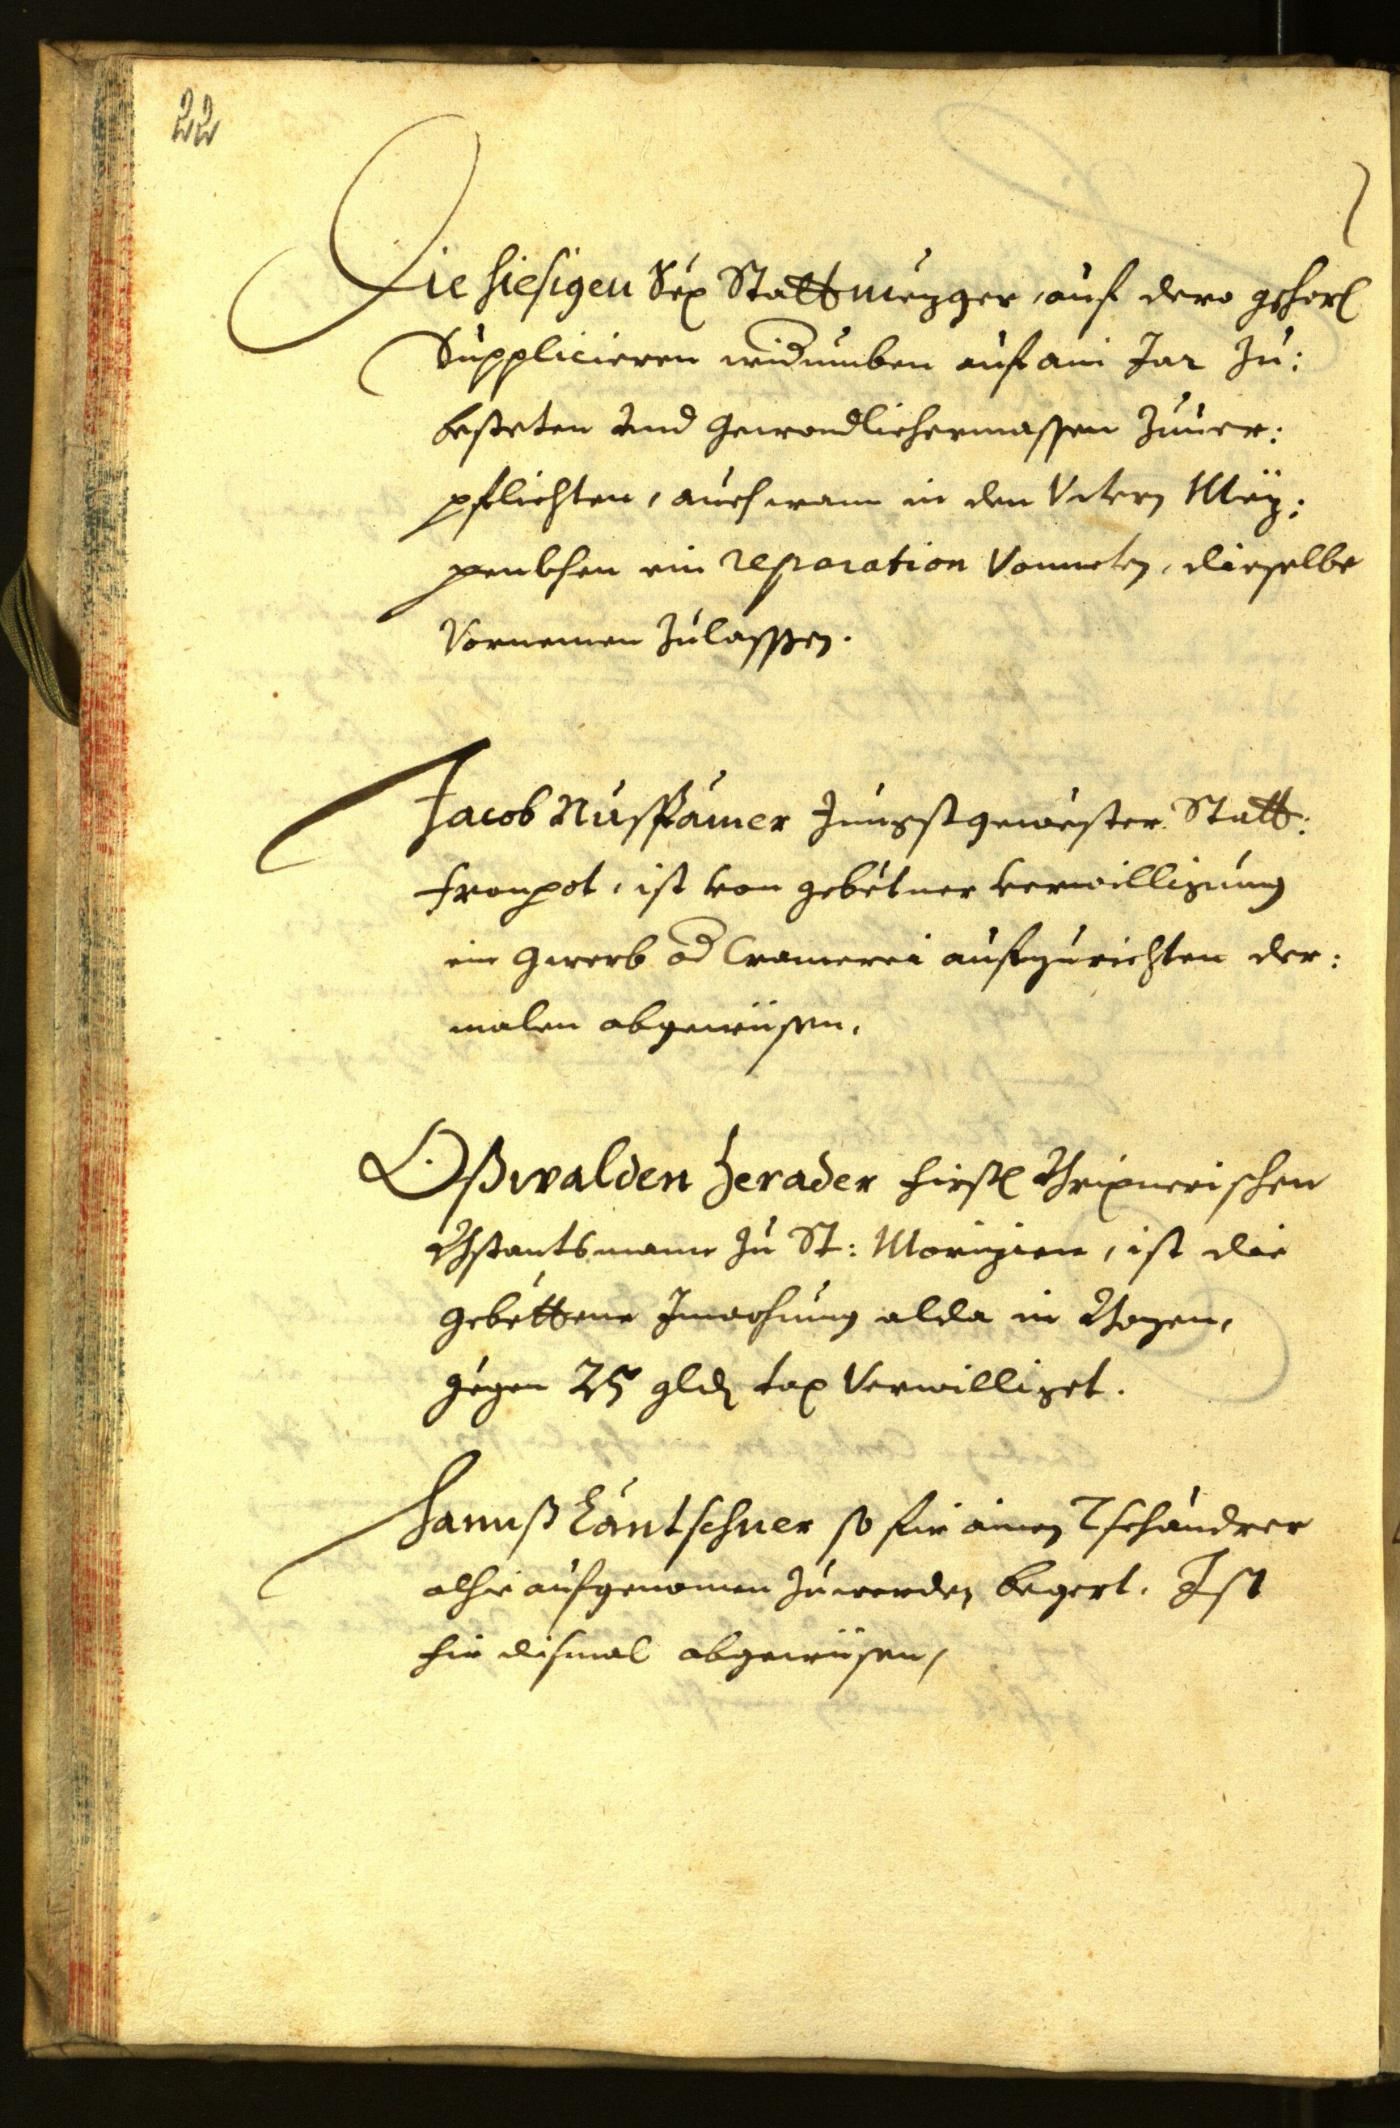 22
Die hiesigen Sex Stattmezger, auf dero gehorl
Supplicieren widumben auf ain Jar zu:
besteten und gewondlichermassen zuuer:
pflichten, auch wann in den Untern Mez:
penkhen ein reparation Vonneten, dieselbe
Vornemen zulassen.
Jacob Nusßamer Jungst gewester Statt:
fronpot, ist von gebetner verwilligung
ein gwerb od Cramerei aufzurichten der:
malen abgewisen.
Oßwalden Herader firstl Brixnerischen
Bstantsmann zu St: Morizien, ist die
gebettene Inwohnung alda in Bozen,
gegen 25 gldn tax Verwilliget.
Hannß Läntschner so fir ainen Tschandrer
alhie aufgenomen zuwerden begert. Ist
fir dismal abgewisen,